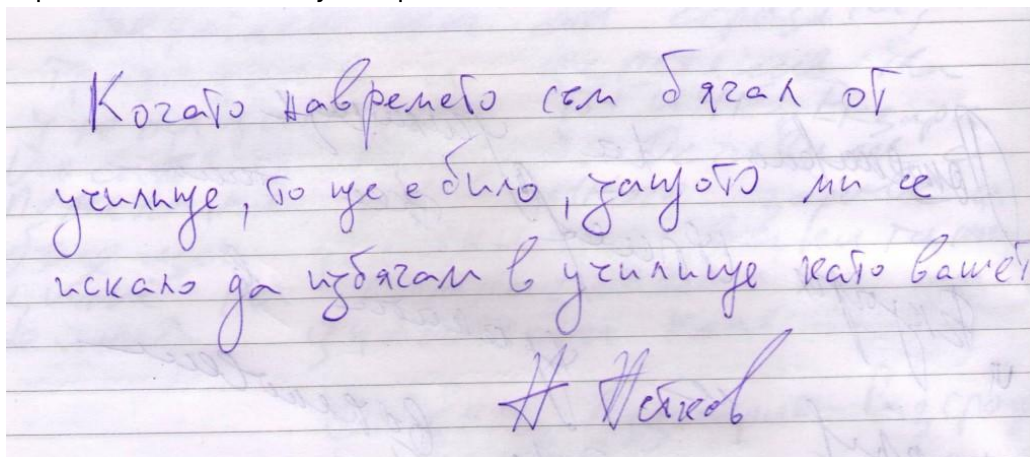 Когато навремето съм бягал от
училище, то ще е било, защото ми се
искало да избягам в училище като вашет